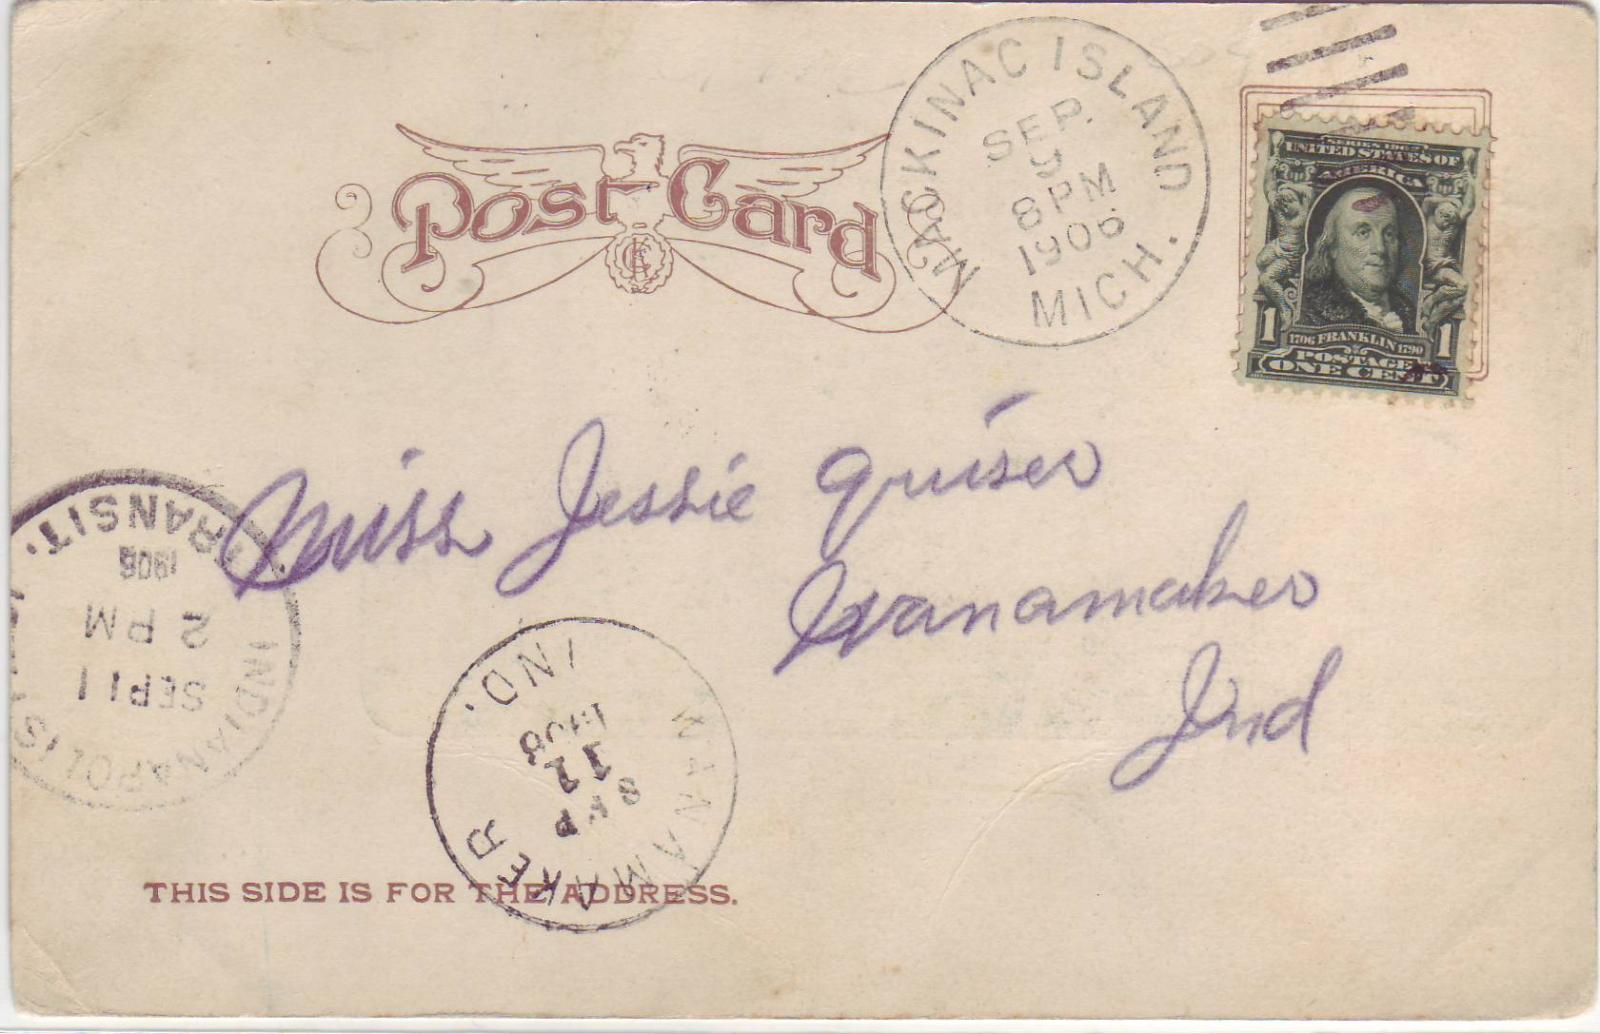 Post Card
MACKINAC ISLAND
SEP.
9
8 PM
1906
MICH.
SERIES 1902
UNITED STATES OF
AMERICA
1 1
1706 FRANKLIN 1790
POSTAGE
ONE CENT
Miss Jessie Gruiser
Wanamaker
Ind
INDIANAPOLIS,
SEP 11
2 PM
1906
TRANSIT.
WANAMAKER
SEP
11
1906
IND.
THIS SIDE IS FOR THE ADDRESS.